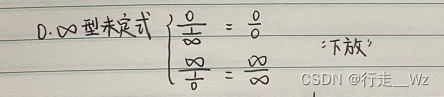 0·∞型未定式 { 0/(1/∞) = 0/0
∞/(1/0) = ∞/∞
"下放"
CSDN @行走__Wz